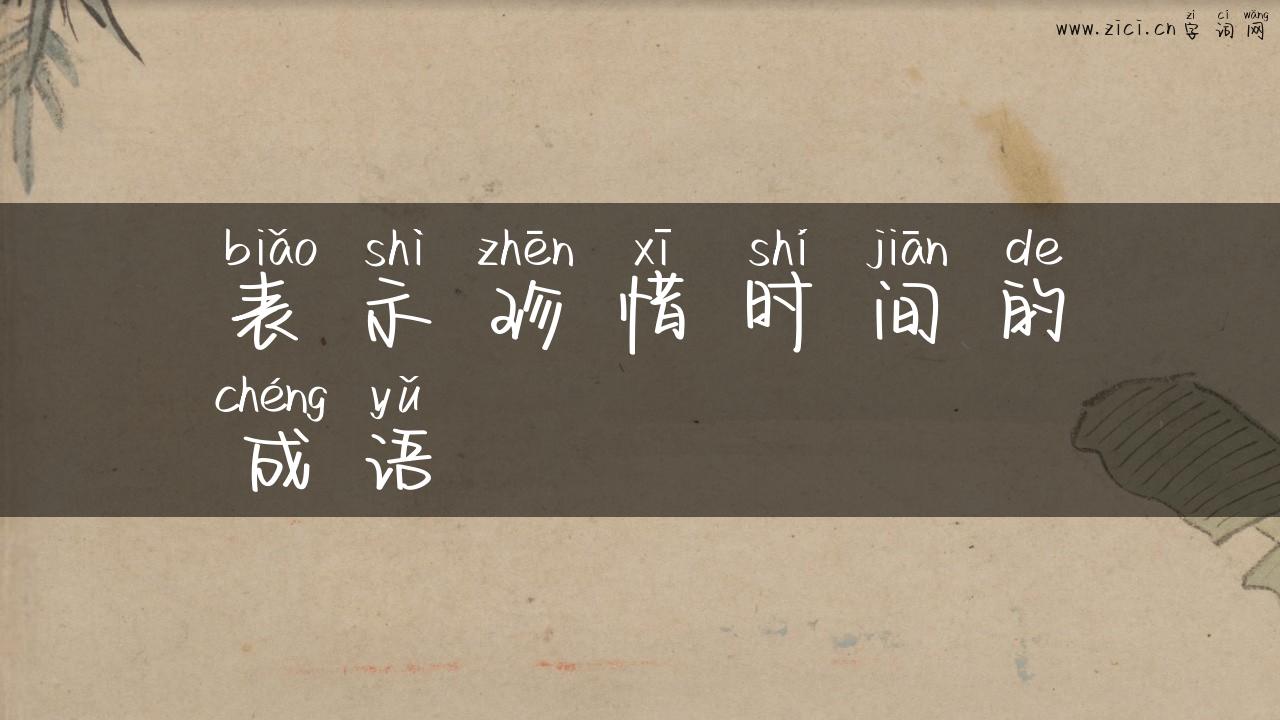 zì cí wǎng
www.zici.cn 字词网
biǎo shì zhēn xī shí jiān de
表示珍惜时间的
chéng yǔ
成语